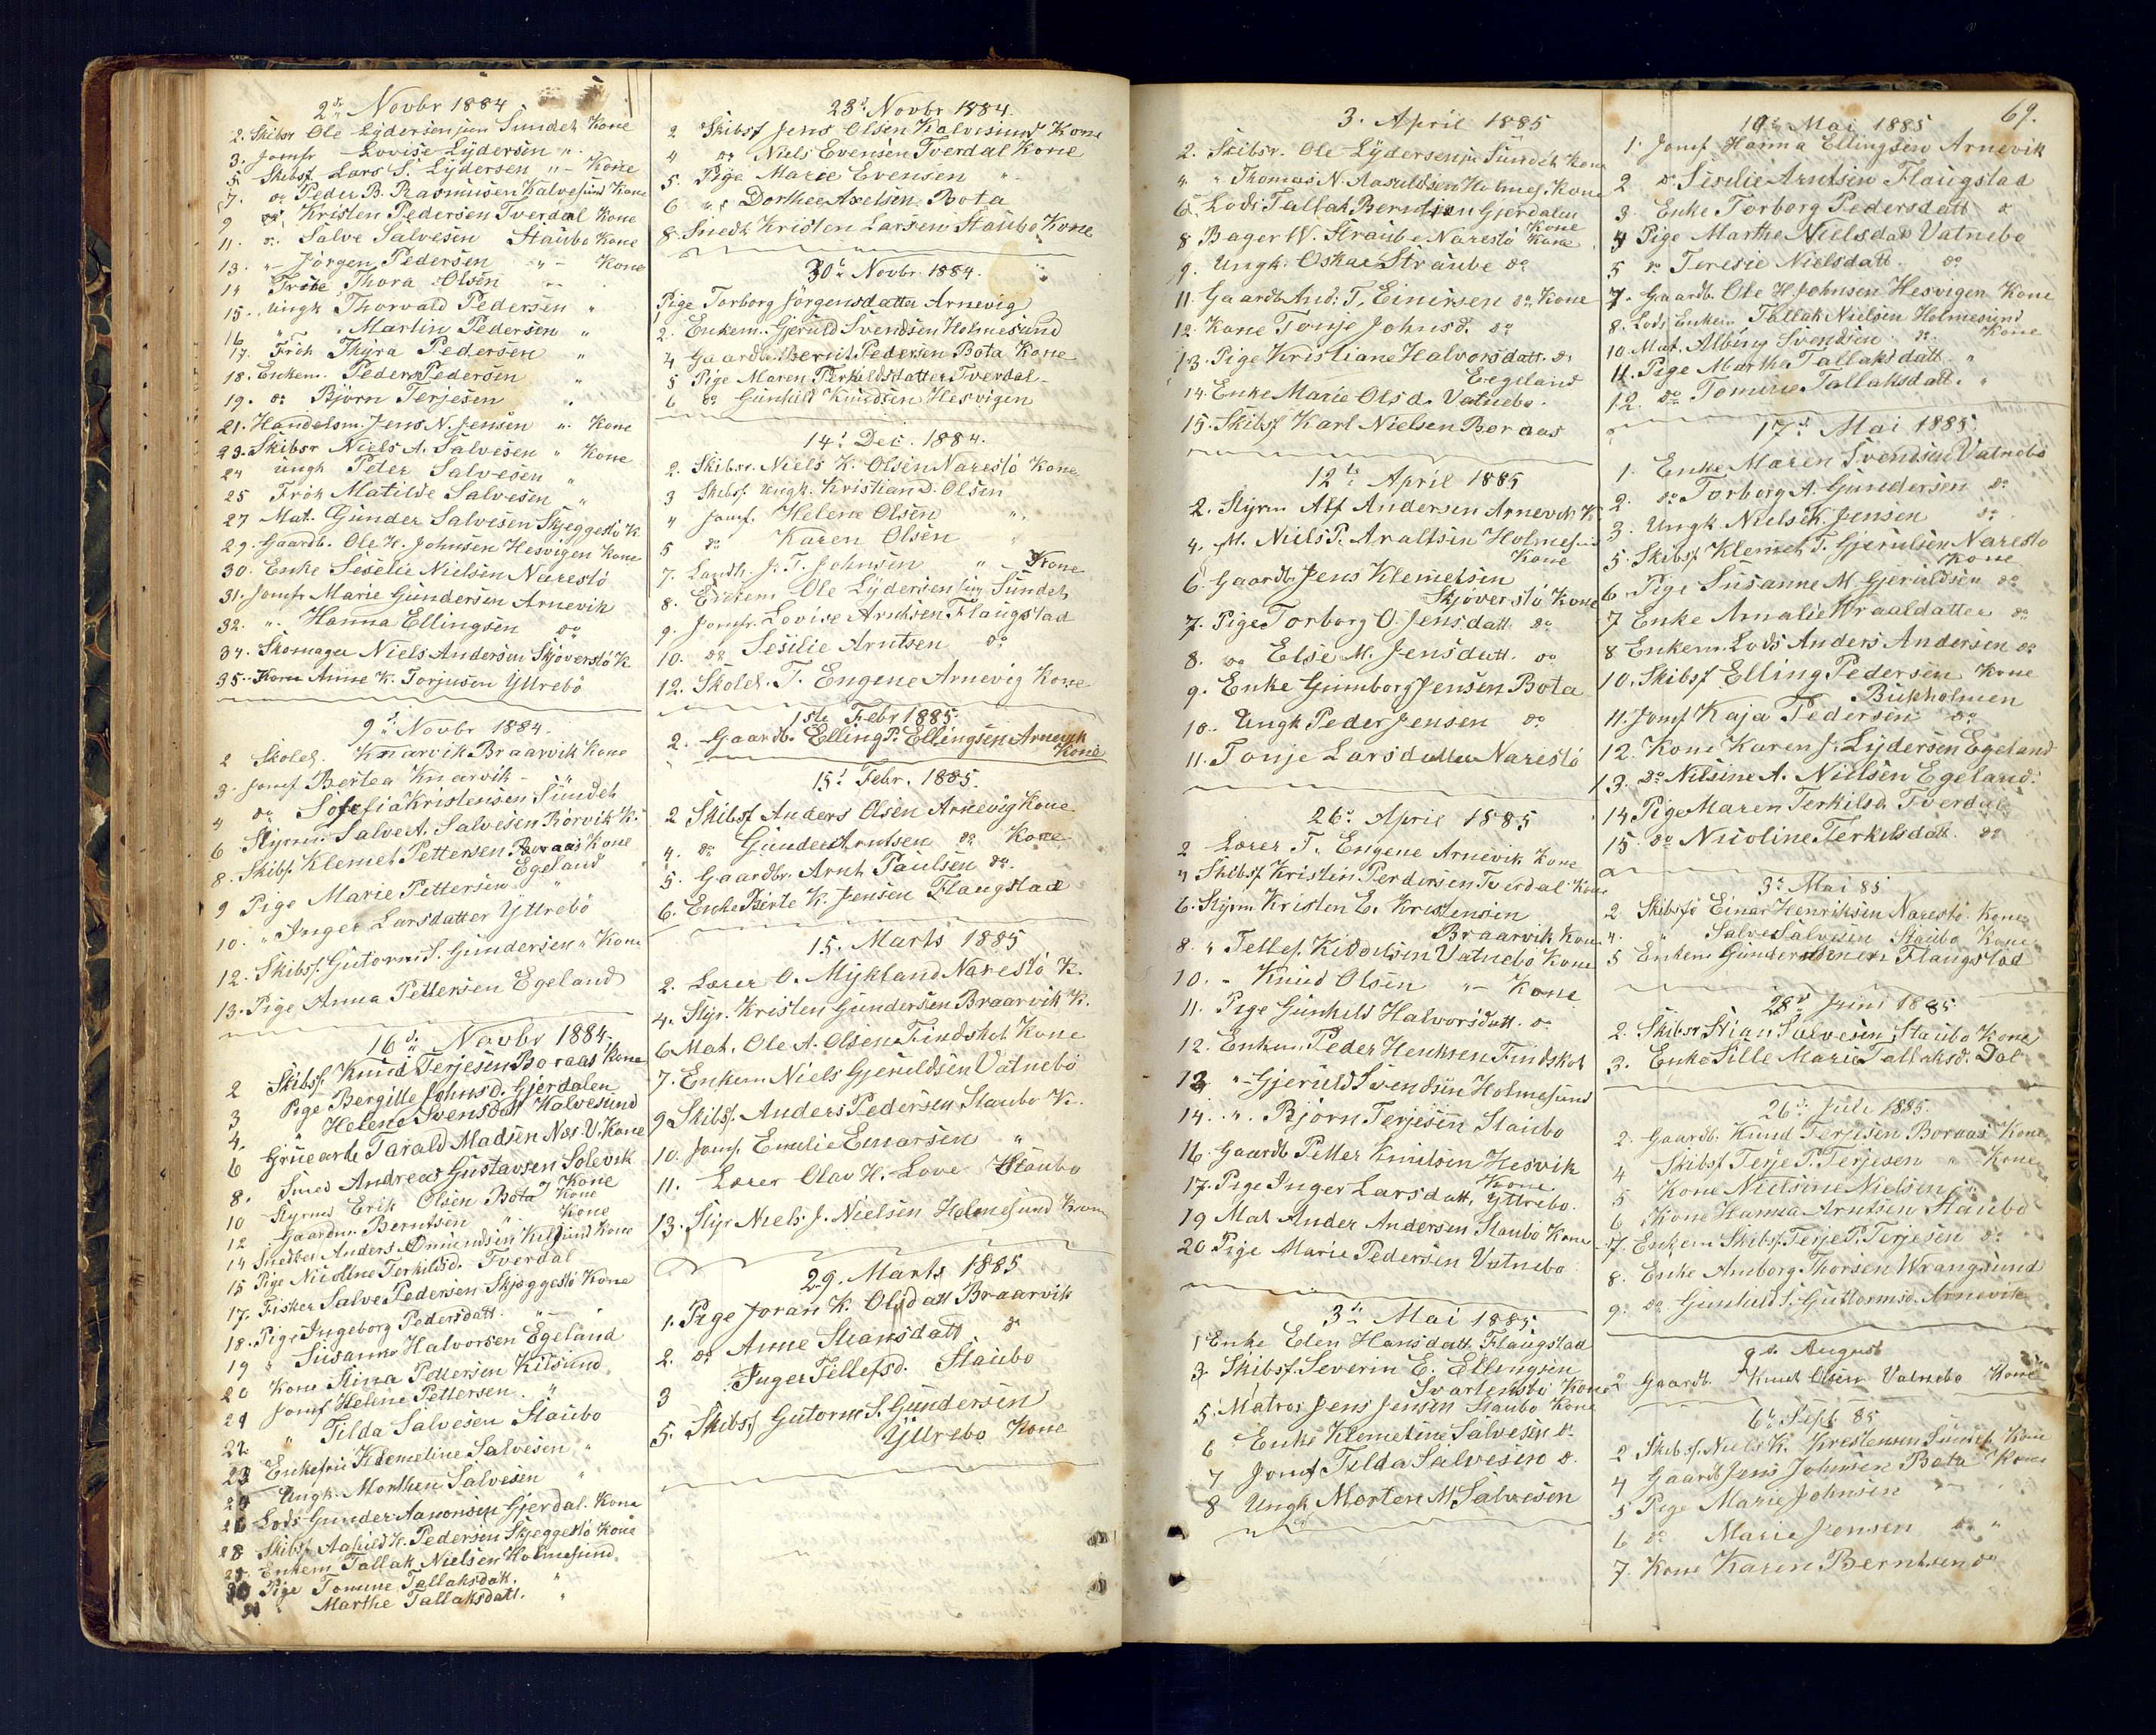 2d Novbr 1884
2. Skibsr Ole Lydersen jun Sundet Kone
3. Jomfr Lovise Lydersen "
5 Skibsf Lars S. Lydersen " - Kone
7. do Peder B. Rasmusen Kalvesund Kone
9 do Kristen Pedersen Tverdal Kone
11. do Salve Salvesen Staubo Kone
13. " Jörgen Pedersen " - Kone
14 Fröke Thora Olsen "
15. Ungk Thorvald Pedersen "
16 " Martin Pedersen "
17. Frök Thyra Pedersen "
18. Enkem. Peder Pedersen "
19. do Björn Terjesen "
21. Handelsm. Jens N. Jensen " Kone
23. Skibsr Niels A. Salvesen " Kone
24 Ungk Peter Salvesen "
25 Frök Matilde Salvesen "
27 Mat. Gunder Salvesen Skjeggestö K
29. Gaardb. Ole H. Johnsen Hesvigen Kone
30. Enke Seselie Nielsen Narestö
31. Jomfr Marie Gundersen Arnevik
32. " Hanna Ellingsen do
34. Skomager Niels Andersen Skjöverstö K
35. Kone Anne K. Torjusen Yttrebö
9d Novbr 1884.
2 Skolel. Knarvik Braarvik Kone
3. Jomf Bertea Knarvik -
4 do Sofefia Kristensen Sundet
6 Styrm. Salve A. Salvesen Rörvik K.
8. Skibsf. Klemet Pettersen Boraas Kone
9 Pige Marie Pettersen Egeland
10. " Inger Larsdatter Yttrebö
12. Skibsf. Gutorm S. Gundersen " Kone
13. Pige Anna Pettersen Egeland
16d Novbr 1884.
2 Skibsf. Knud Terjesen Boraas Kone
3 Pige Bergitte Johnsd. Gjerdalen
4. " Helene Svensdatt Kalvesund
6 Gruearb Tarald Madsen Nes V. Kone
8. Smed Andreas Gustavsen Solevik Kone
10 Styrmd Erik Olsen Bota Kone
12 Gaardm. Berntsen " Kone
14 Snedker Anders Omundsen Kilsund Kone
15 Pige Nicoline Terkildsd. Tverdal
17. Fisker Salve Pedersen Skjeggestö Kone
18. Pige Ingeborg Pedersdatt. "
19 " Susanne Halvorsen Egeland
20 Kone Stina Pettersen Kilsund
21 Jomf Helene Pettersen "
22. " Tilda Salvesen Staubo
23 Enkefru Klemetine Salvesen "
24 Ungk. Morthen Salvesen "
26 Lods Gunder Aanonsen Gjerdal. Kone
28 Skibsf Aasuld K. Pedersen Skjeggestö Kone
29. Enkem Tallak Nielsen Holmesund
30 Pige Tomine Tallaksdatt. "
31 " Marthe Tallaksdatt. "
23d Novbr 1884.
2 Skibsf Jens Olsen Kalvesund Kone
4 do Niels Evensen Tverdal Kone
5. Pige Marie Evensen "
6 " Dorthea Axelsen Bota
8 Snedk Kristen Larsen Staubo Kone
30d Novbr 1884.
1 Pige Torborg Jörgensdatter Arnevig
2. Enkem. Gjeruld Svendsen Holmesund
4 Gaardb. Berrit Pedersen Bota Kone
5 Pige Maren Terkildsdatter Tverdal
6 do Gunhild Knudsen Hesvigen
14d Dec. 1884.
2. Skibsr. Niels K. Olsen Narestö Kone
3 Skibsf. Ungk. Kristian D. Olsen
4 Jomf. Helene Olsen "
5 do Karen Olsen "
7. Landh. J. T. Johnsen " - Kone
8. Enkem Ole Lydersen sen Sundet
9. Jomfr. Lovise Arntsen Flaugstad
10. do Seselie Arntsen do
12. Skolel. T. Engene Arnevig Kone
1ste Febr 1885.
2. Gaardb. Elling P. Ellingsen Arnevik Kone
15d Febr. 1885.
2 Skibsf Anders Olsen Arnevig Kone
4. do Gunder Arntsen do Kone
5. Gaardbr. Arnt Paulsen do.
6. Enke Birte K. Jensen Flaugstad
15. Marts 1885
2. Lærer O. Mykland Narestö K.
4. Styr. Kristen Gundersen Braarvik K.
6 Mat. Ole A. Olsen Findskot Kone
7. Enkem Niels Gjeruldsen Vatnebö
9 Skibsf. Anders Pedersen Staubo K.
10. Jomf. Emilie Einarsen "
11. Lærer Olav H. Love Staubo
13. Styr Niels J. Nielsen Holmesund Kone
29. Marts 1885
1. Pige Joran K. Olsdatt Braarvik
2. do Anne Stiansdatt do
3 Inger Tellefsd. Staubo
5. Skibsf Gutorm S. Gundersen
Yttrebo Kone
69.
3. April 1885
2. Skibsr. Ole Lydersen jn Sundet Kone
4 " Thomas N. Aasuldsen Holmes. Kone
6. Lods Tallak Berntsen Gjerdalen Kone
8 Bager W. Straube Narestö Kone
9. Ungk. Oskar Straube do
11. Gaardb And: T. Einersen do. Kone
12. Kone Tonje Johnsd. do
13. Pige Kristiane Halvorsdatt. do
Eegeland
14. Enke Marie Olsd. Vatnebo.
15. Skibsf Karl Nielsen Boraas
12te April 1885
2. Styrm Alf Andersen Arnevik K
4. M. Niels P. Araltsen Holmesund
Kone
6. Gaardb Jens Klemetsen
Skjöverstö Kone
7. Pige Torborg O. Jensdatt do
8. do Else M. Jensdatt. do
9. Enke Gunnborg Jensen Bota
10. Ungk Peder Jensen do
11. Tonje Larsdatter Narestö
26d April 1885
2 Lærer T. Engene Arnevik Kone
4 Skibsf Kristen Perdersen Tverdal Kone
6. Styrm Kristen E. Kristensen
Braarvik Kone
8. " Tellef. Kiddelsen Vatnebö Kone
10. " Knud Olsen " Kone
11. Pige Gunhild Halvorsdatt. do
12. Enkem. Peder Henksen Findskot
13 " Gjeruld Svendsen Holmesund
14. " Björn Terjesen Staubo
16. Gaardb Petter Knudsen Hesvik
Kone.
17. Pige Inger Larsdatt. Yttrebo.
19 Mat Ander Andersen Staubo Kone
20 Pige Marie Pedersen Vatnebo
3di Mai 1885.
1 Enke Elen Hansdatt. Flaugstad
3 Skibsf. Severin E. Ellingsen
Svartensbo Kone
5. Matros Jens Jensen Staubo Kone
6 Enke Klemetine Salvesen do.
7 Jomf Tilda Salvesen do.
8 Ungk Morten M Salvesen
10d Mai 1885
1. Jomf Hanna Ellingsen Arnevik
2 do Seselie Arntsen Flaugstad
3. Enke Torborg Pedersdatt do
4 Pige Marthe Nielsdatt Vatnebo
5 do Teresie Nielsdatt. do
7. Gaardb. Ole H. Johnsen Hesvigen Kone
8. Lods Enkem Tallak Nielsen Holmesund
10. Mat. Albing Svendsen do. Kone
11. Pige Martha Tallaksdatt. "
12. do Tomine Tallaksdatt. "
17d Mai 1885.
1. Enke Maren Svendsen Vatnebö
2. do Torborg A. Gundersen do
3. Ungk. Niels K. Jensen do
5. Skibsf Klemet T. Gjeruldsen Narestö
Kone
6. Pige Susanne M. Gjeruldsen do
7 Enke Amalie Wraaldatter do
8 Enkem. Lods Anders Andersen do
10. Skibsf Elling Pedersen Kone
Bukholmen
11. Jomf Kaja Pedersen do
12. Kone Karen J. Lydersen Egeland
13. do Nilsine A. Nielsen Egeland.
14 Pige Maren Terkilsd. Tverdal
15 do Nicoline Terkildsdatt. do
3d Mai 85
2 Skibsfö Einar Henriksen Narestö Kone
4. " Salve Salvesen Staubo Kone
5 Enkem Gunder Flaugstad
28d Juni 1885
2. Skibsr Stian Salvesen, Staubo Kone
3. Enke Sille Marie Tallaksd. Dal
26d Juli 1885.
2. Gaardb. Knud Terjesen Boraas Kone
4 Skibsf Terje P. Terjesen " Kone
5 Kone Nielsine Nielsen "
6 Kone Hanna Arntsen Staubo
7. Enkem Skibsf. Terje P. Terjesen do
8. Enke Amborg Thorsen Wrangsund
9. do Gunhild S. Guttormsd. Arnevik
9de August
2 Gaardb. Knud Olsen Vatnebo Kone
6d Sept 85
2 Skibsf. Niels K. Krestensen Sundet Kone
4 Gaardb Jens Johnsen Bota Kone
5 Pige Marie Johnsen "
6 do Marie Jensen do "
7. Kone Karen Berntsen do